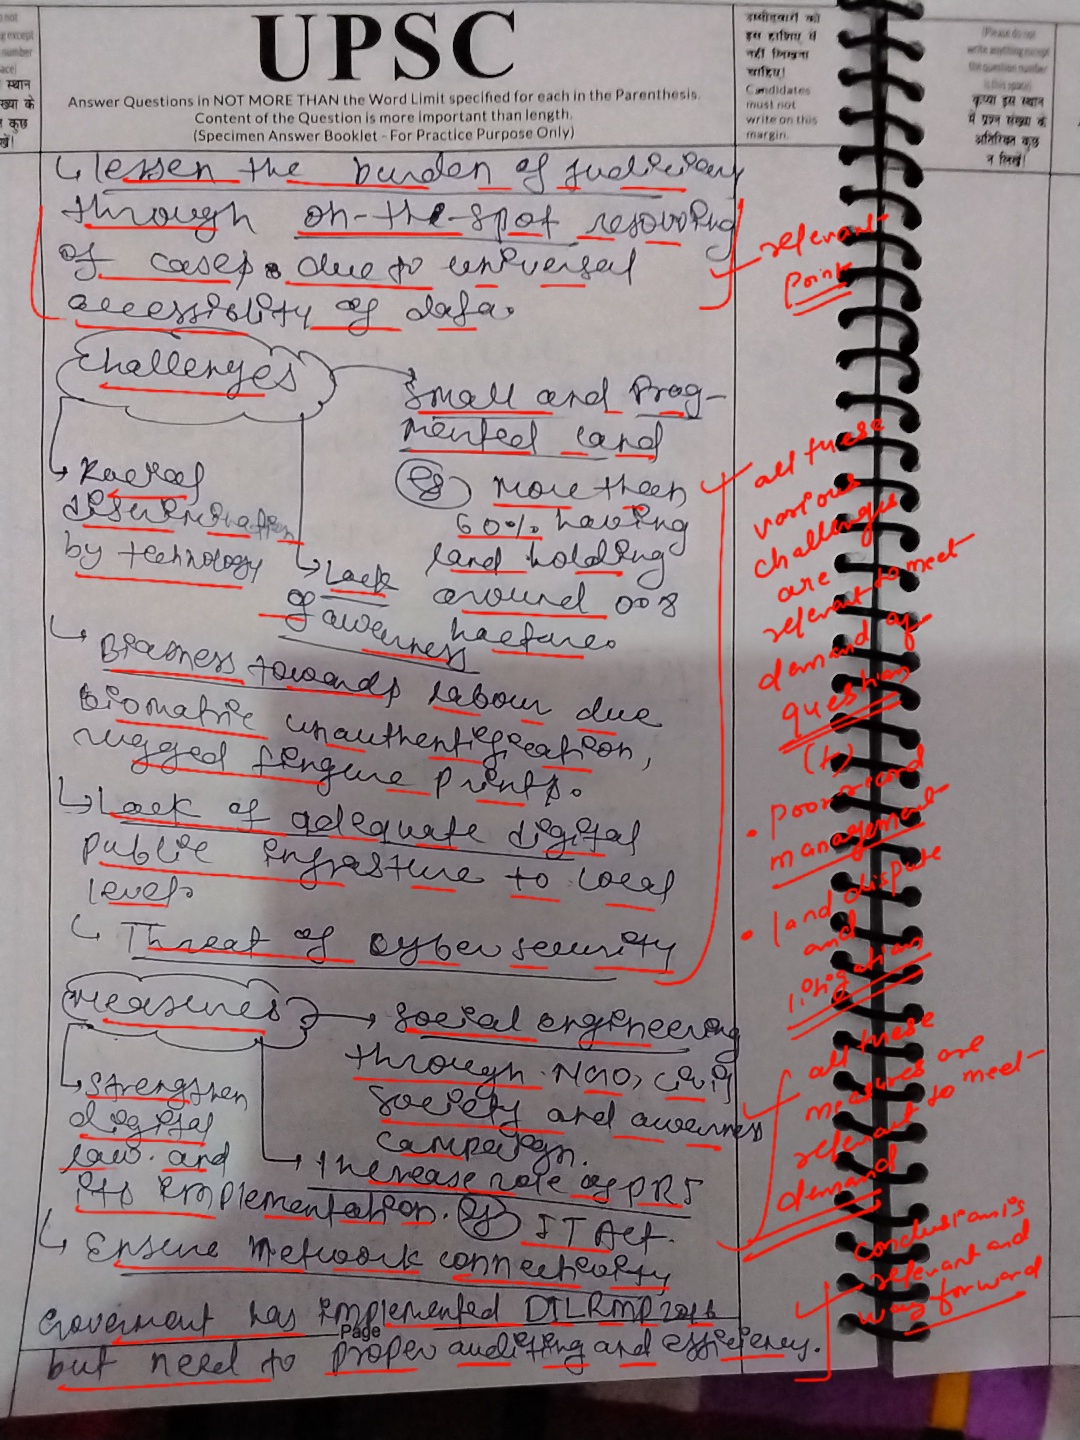 UPSC
Answer Questions in NOT MORE THAN the Word Limit specified for each in the Parenthesis.
Content of the Question is more important than length.
(Specimen Answer Booklet - For Practice Purpose Only)
उम्मीदवारों को
इस हाशिए में
नहीं लिखना
चाहिए।
Candidates
must not
write on this
margin.
(Please do not
write anything except
the question number
in this space)
कृपया इस स्थान
में प्रश्न संख्या के
अतिरिक्त कुछ
न लिखें।
lessen the burden of judiciary
through on-the-spot resolving
of cases due to universal
accessiblity of data.
relevant
point
Challenges
Small and Frag-
mented land
Eg more than
60% having
land holding
around 0.08
hactare.
discrimination
by technology
Lack
of awerness
Biasness towards labour due
biomatric unauthentification,
rugged fingure prints.
Lack of adequate digital
public infrasture to local
level.
Threat of cyber security
all these
various
challenges
are
relevant to meet
demand of
question
(+)
• poor record
management
• land dispute
and
litigation
Measures
Social engineering
through NGO, civil
society and awerness
campaign.
Strengthen
digital
law and
its implementation. Eg IT Act.
Increase role of PRI
Ensure network connectivity
all these
measures are
relevant to meet
demand
Goverment has implemented DILRMP 2016
but need to proper auditing and efficiency.
Page
conclusion is
relevant and
way forward